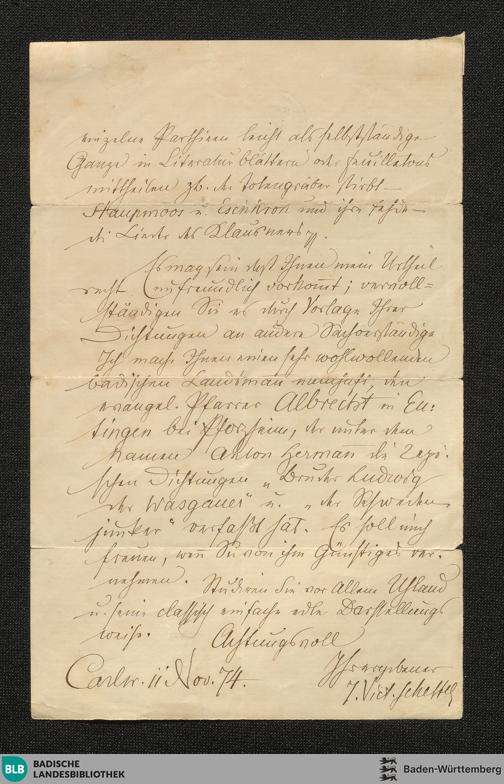 einzelne Parthieen leicht als selbstständige
Ganze in Literaturblättern oder Feuilletons
mittheilen zb. der Totengräber stirbt –
Haupmoos u. Eschkron und ihre Fehde –
die Lieder des Klausners pp.
Es mag sein daß Ihnen mein Urtheil
recht unfreundlich vorkommt; vervoll=
ständigen Sie es durch Vorlage Ihrer
Dichtungen an andere Sachverständige
Ich mache Ihnen einen sehr wohlwollenden
badischen Landsman namhaft, den
evangel. Pfarrer Albrecht in Eu=
tingen bei Pforzheim, der unter dem
Namen Anton Herman die 2 epi=
schen Dichtungen „Bruder Ludwig
der Wasgauer" u. „der Schweden
junker" verfaßt hat. Es soll mich
freuen, wen Sie von ihm Günstiges ver=
nehmen. Studiren Sie vor Allem Uhland
u. seine classisch einfache edle Darstellungs
weise. Achtungsvoll
Ihr ergebener
Carlsr. 11 Nov. 74.
J. Vict. Scheffel
BLB BADISCHE
LANDESBIBLIOTHEK
Baden-Württemberg